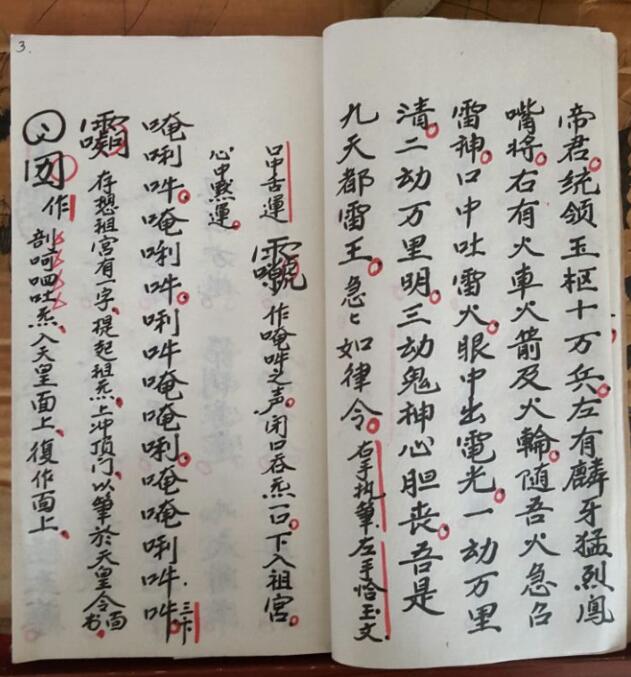 帝君。统领玉枢十万兵。左有麟牙猛烈鳳
嘴将。右有火車火箭及火輪。随吾火急召
雷神。口中吐雷火。眼中出電光。一动万里
清。二动万里明。三动鬼神心胆丧。吾是
九天都雷王。急々如律令。右手执筆、左手恰玉文
口中舌運
作唵吽之声。闭口吞炁一口。下入祖宮。
心中黙運。
唵唎吽。唵唎吽。唎吽唵唵唎。唵唵唎吽吽。三卞
存想祖宮有一字、提起祖炁、上冲顶门、以筆於天皇令面书、
作剖呵呬吐炁、入天皇面上、復作面上、
3.